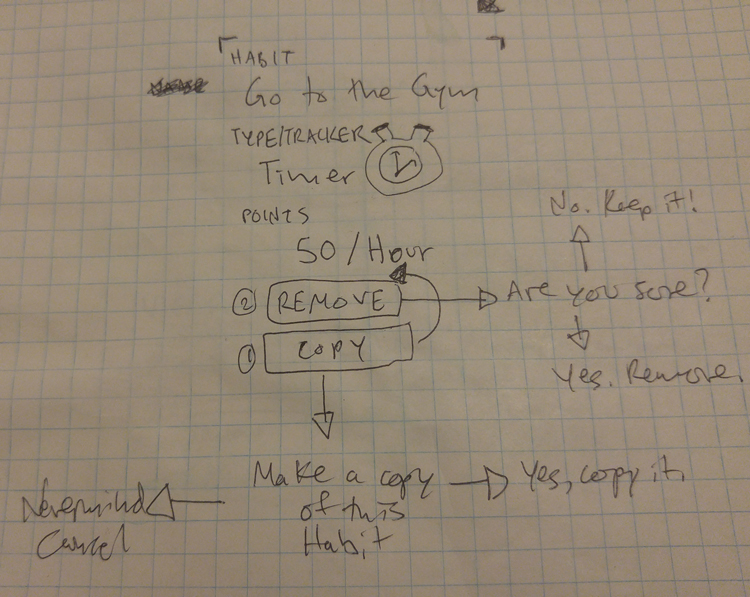 HABIT
Go to the Gym
TYPE/TRACKER
Timer
POINTS
50 / Hour
No. Keep it!
② REMOVE
Are you sure?
① COPY
Yes. Remove.
Make a copy
of this
Habit
Yes, copy it.
Nevermind
Cancel